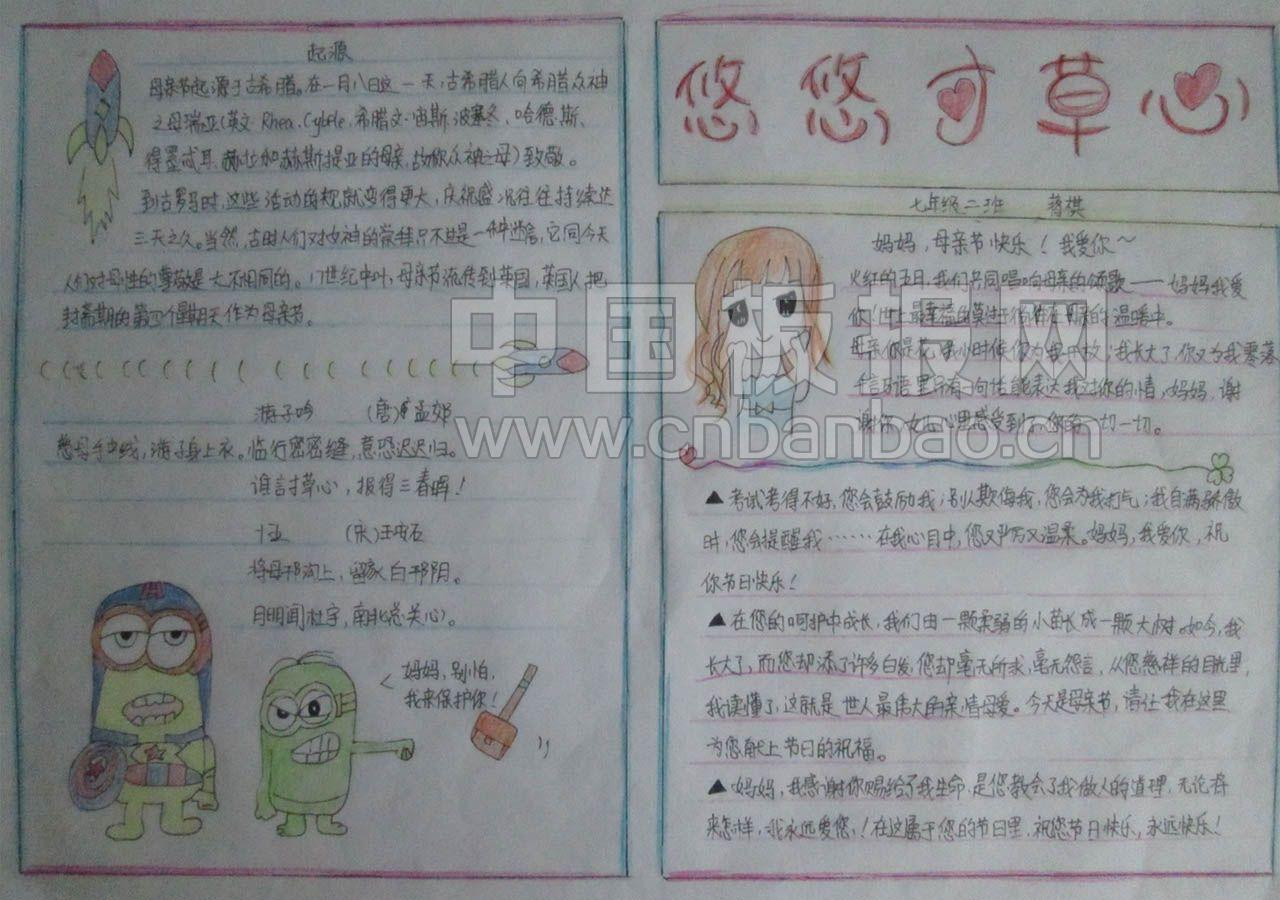 起源
母亲节起源于古希腊。在一月八日这一天,古希腊人向希腊众神
之母瑞亚(英文 Rhea、Cybele,希腊文:宙斯、波塞冬、哈德斯、
得墨忒耳、赫拉和赫斯提亚的母亲,故称众神之母)致敬。
到古罗马时,这些活动的规就变得更大,庆祝盛况往往持续达
三天之久。当然,古时人们对女神的崇拜只不过是一种迷信,它同今天
人们对母性的尊敬是大不相同的。17世纪中叶,母亲节流传到英国,英国人把
封斋期的第四个星期天作为母亲节。
游子吟 (唐)孟郊
慈母手中线,游子身上衣。临行密密缝,意恐迟迟归。
谁言寸草心,报得三春晖!
十五 (宋)王安石
将母邗沟上,留家白邗阴。
月明闻杜宇,南北总关心。
妈妈,别怕,
我来保护你!
悠悠寸草心
七年级二班
妈妈,母亲节快乐!我爱你~
火红的五月,我们共同唱响母亲的颂歌——妈妈我爱
你!世上最
母亲你是花,我小时候你为我开放,我长大了,你又为我零落
千言万语里只有一句话能表达我对你的情,妈妈,谢
谢你,女儿心里感受到了您的一切一切。
▲考试考得不好,您会鼓励我;别人欺侮我,您会为我打气;我自满骄傲
时,您会提醒我……在我心目中,您又严厉又温柔。妈妈,我爱你,祝
你节日快乐!
▲在您的呵护中成长,我们由一颗柔弱的小苗长成一颗大树。如今,我
长大了,而您却添了许多白发,您却毫无所求,毫无怨言,从您慈祥的目光里,
我读懂了,这就是世人最伟大的亲情母爱。今天是母亲节,请让我在这里
为您献上节日的祝福。
▲妈妈,我感谢你赐给了我生命,是您教会了我做人的道理,无论将
来怎样,我永远爱您,!在这属于您的节日里,祝您节日快乐,永远快乐!
中国板报网
www.cnbanbao.cn